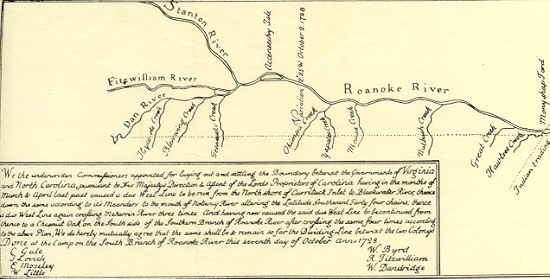 Stanton River
Acaneechy Isle
Meridian 2°25 W October 2. 1728
Monyshap Ford
Fitzwilliam River
Roanoke River
Dan River
Hycoote Creek
Blewwing Creek
Tewakominy Creek
Creek
Creek
Creek
Nutbush Creek
Great Creek
Hawtree Creek
Indian trading
We the underwriten Commissioners appointed for laying out and settling the Boundary betwixt the Governments of Virginia
and North Carolina, pursuant to His Majestys Direction & Assent of the Lords Proprietors of Carolina having in the months of
March & April last past caused a due West Line to be run from the North shore of Currituck Inlet to Blackwater River, thence
down the same according to its Meanders to the mouth of Notoway River altering the Latitude Southward Forty four chains; thence
a due West Line again crossing Meherrin River three times. And having now caused the said due West Line to be continued from
thence to a Chesnut Oak on the South side of the Southern Branch of Roanoke River after crossing the same four times according
to the above Plan, We do hereby mutually agree that the same shall be & remain so far the Dividing Line betwixt the two Colonys
Done at the Camp on the South Branch of Roanoke River this seventh day of October Anno 1728
C Gale
J Lovick
E Moseley
W Little
W. Byrd
R. Fitzwilliam
W. Dandridge